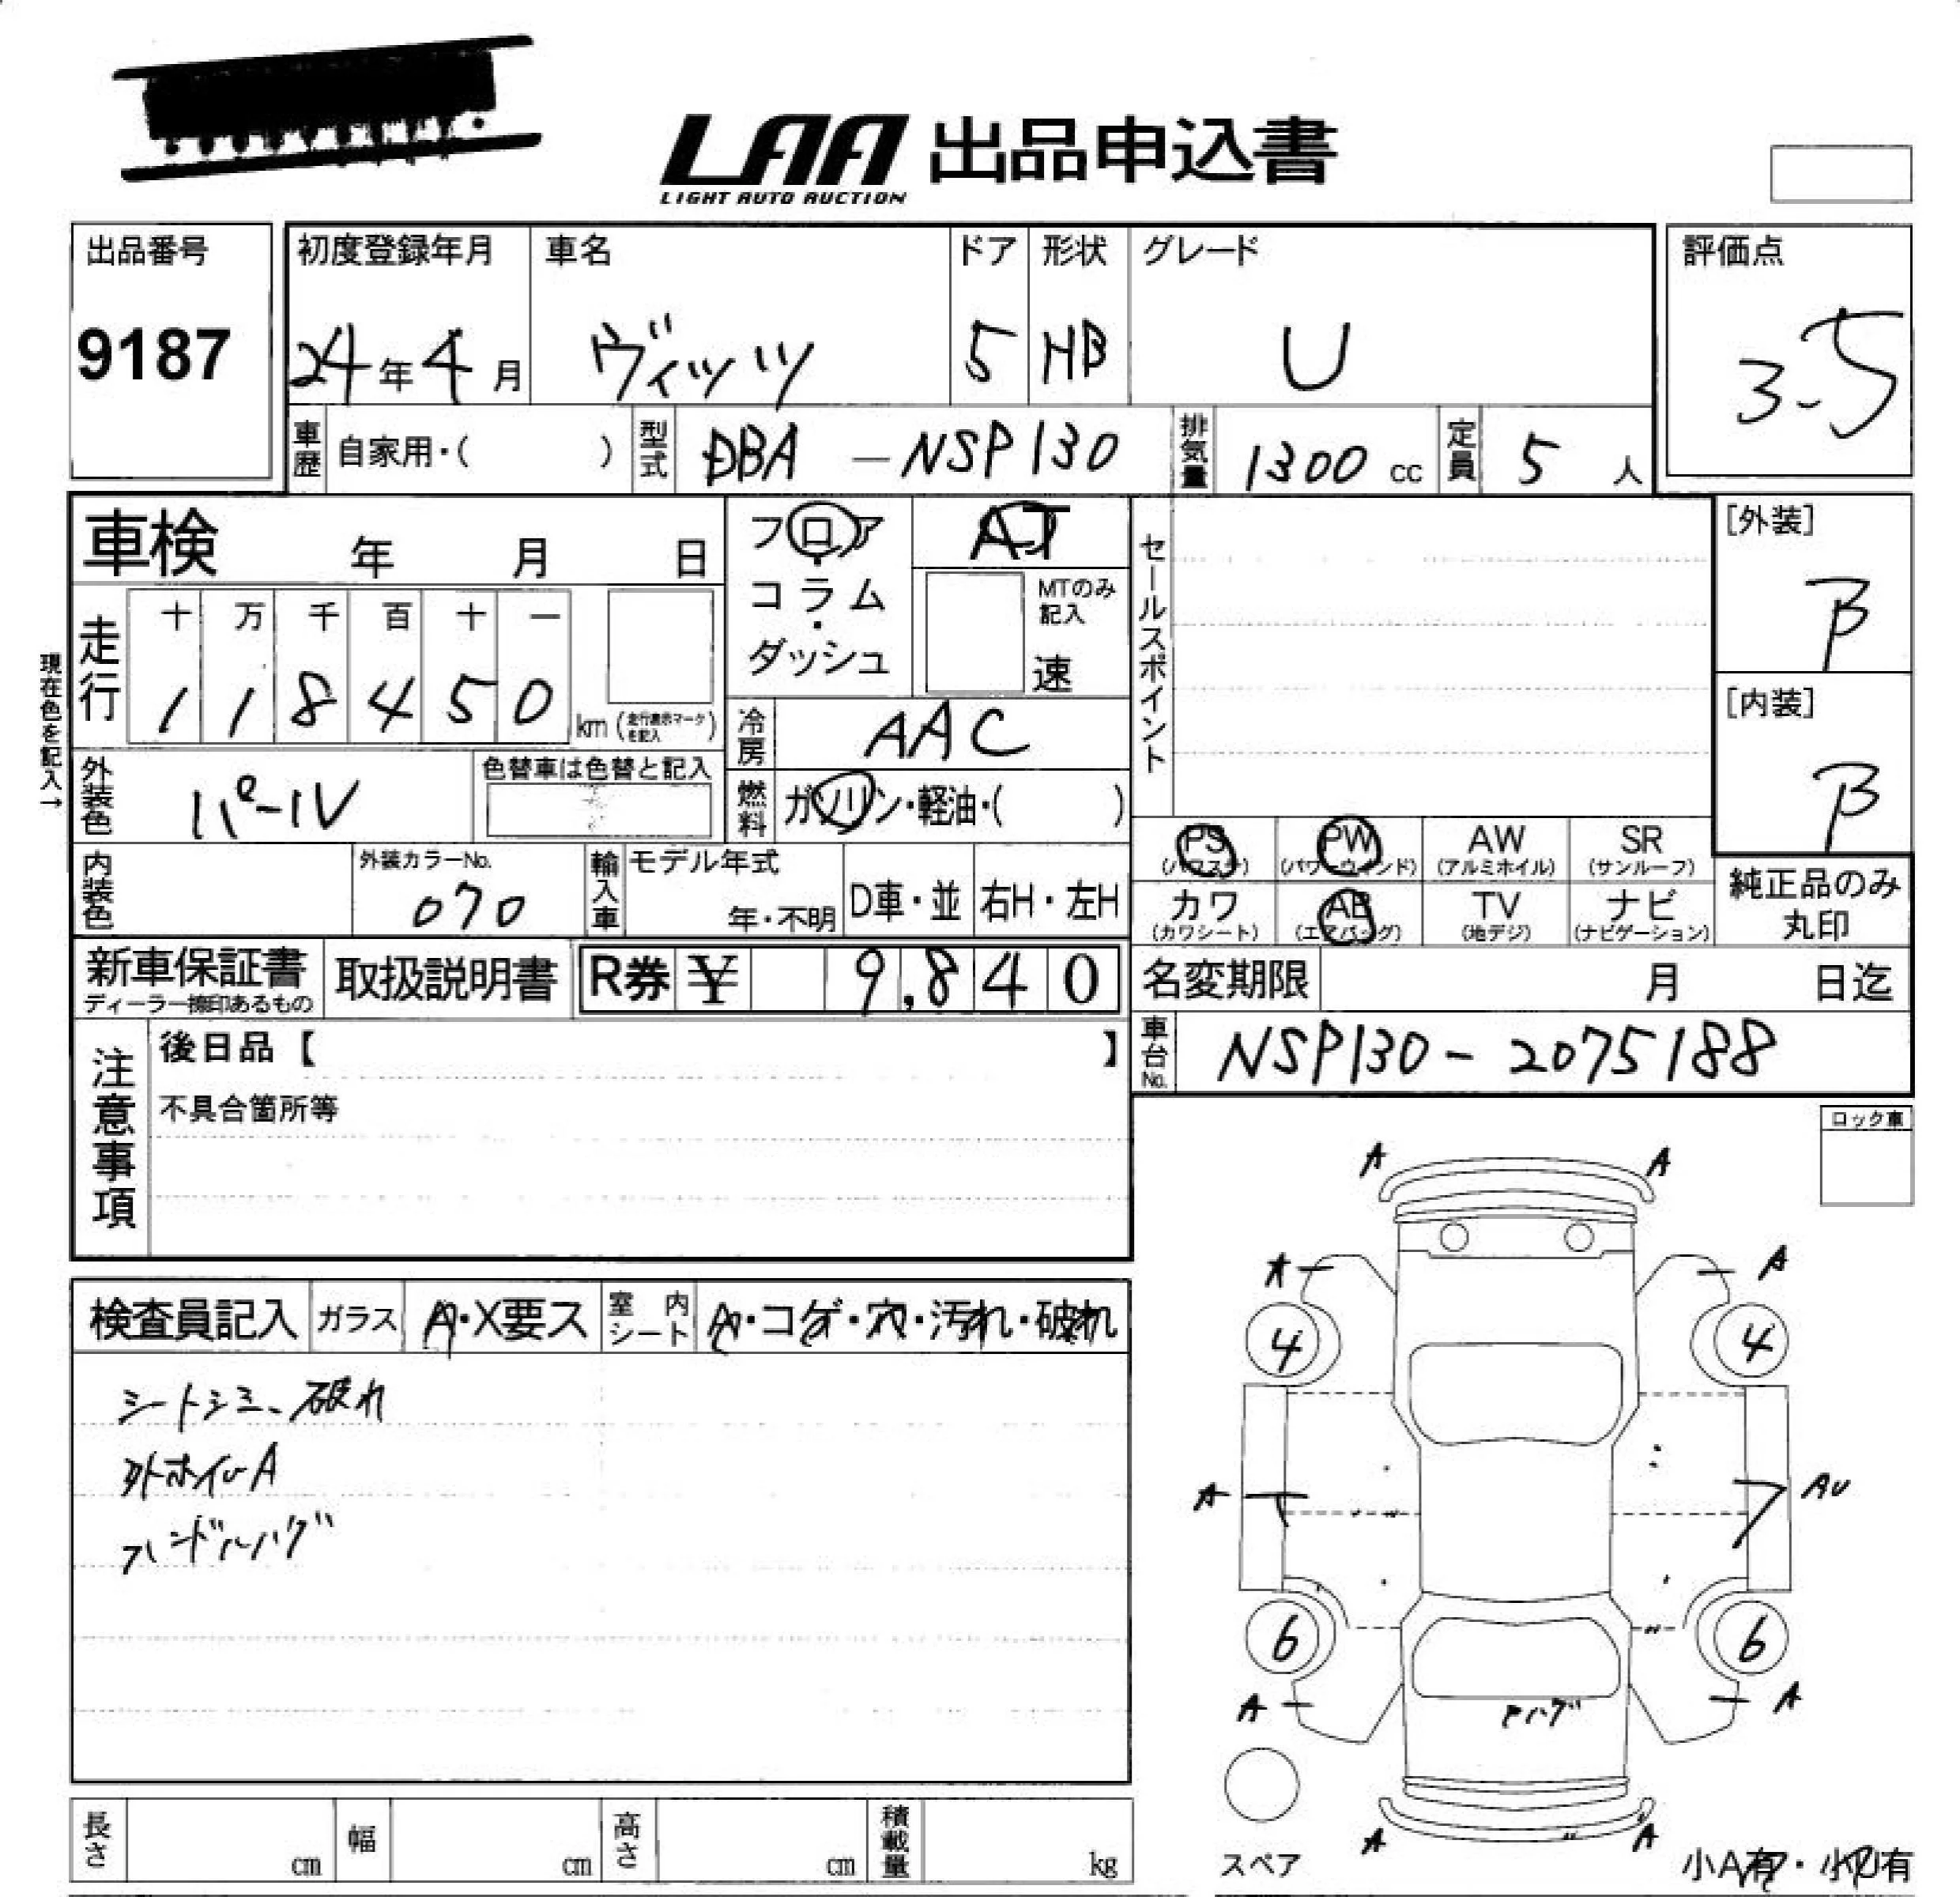 LAA 出品申込書
LIGHT AUTO AUCTION
出品番号
9187
初度登録年月
24年 4月
車名
ヴィッツ
ドア
5
形状
HB
グレード
U
評価点
3.5
車歴 自家用・( )
型式 DBA - NSP130
排気量 1300 cc
定員 5 人
車検 年 月 日
フロア・コラム・ダッシュ
AT
MTのみ記入
速
セールスポイント
[外装]
B
[内装]
B
現在色を記入→
走行
十 万 千 百 十 一
1 1 8 4 5 0 km
冷房 AAC
外装色 パール
色替車は色替と記入
燃料 ガソリン・軽油・( )
PS (パワステ)
PW (パワーウインド)
AW (アルミホイル)
SR (サンルーフ)
カワ (カワシート)
AB (エアバッグ)
TV (地デジ)
ナビ (ナビゲーション)
純正品のみ丸印
内装色
外装カラーNo.
070
輸入車
モデル年式
年・不明
D車・並
右H・左H
新車保証書
取扱説明書
R券 ¥ 9,840
名変期限 月 日迄
車台No. NSP130-2075188
注意事項
後日品【 】
不具合箇所等
ロック車
検査員記入
ガラス A・X要ス
室内シート A・コゲ・穴・汚れ・破れ
シートシミ、破れ
外ホイルA
ハンドルハゲ
A A
A A
4 4
A AU
6 6
A A
ハゲ
A A
スペア
小A有・小U有
長さ cm
幅 cm
高さ cm
積載量 kg